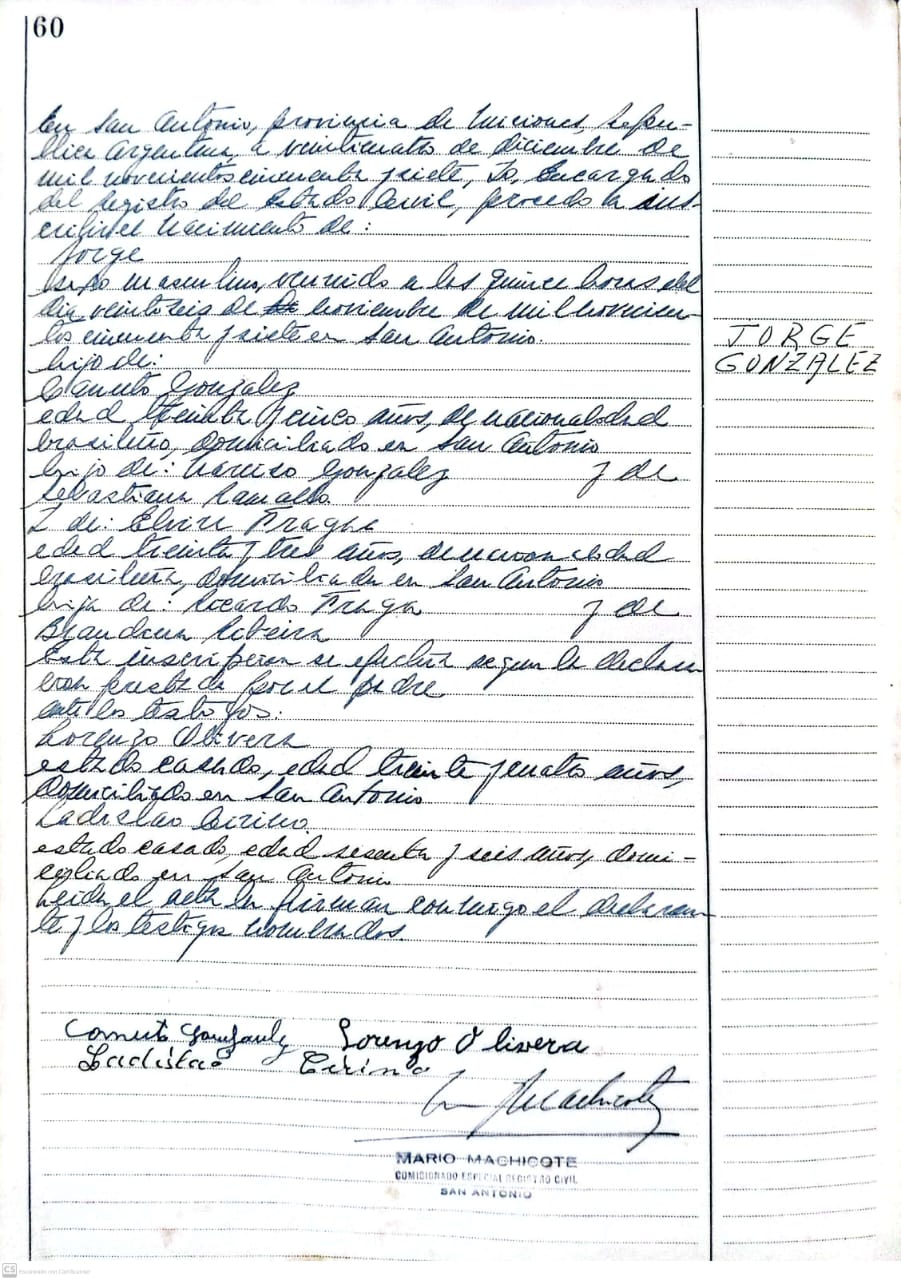 60
En San Antonio, provincia de Misiones, Repú-
blica Argentina, a veinticuatro de diciembre de
mil novecientos cincuenta y siete, Yo, Encargado
del Registro del Estado Civil, procedo a ins-
cribir el nacimiento de:
Jorge
sexo masculino, nacido a las quince horas del
día veintiseis de noviembre de mil novecien-
tos cincuenta y siete en San Antonio.
JORGE
GONZALEZ
hijo de:
Canuto Gonzalez
edad treinta y cinco años, de nacionalidad
brasileño, domiciliado en San Antonio
hijo de: Narciso Gonzalez y de
Sebastiana Ramallo
Y de: Elvira Fraga
edad treinta y tres años, de nacionalidad
brasileña, domiciliada en San Antonio
hija de: Ricardo Fraga y de
Blandina Ribeira
Esta inscripcion se efectua segun la declara
cion prestada por el padre
ante los testigos:
Lorenzo Olivera
estado casado, edad treinta y cuatro años,
domiciliado en San Antonio
Ladislao Cirino
estado casado, edad sesenta y seis años, domi-
ciliado en San Antonio
Leida el acta la firman conmigo el declaran
te y los testigos nombrados.
Lorenzo Olivera
Ladislao Cirino
Machicote
MARIO MACHICOTE
COMISIONADO ESPECIAL REGISTRO CIVIL
SAN ANTONIO
CS Escaneado con CamScanner